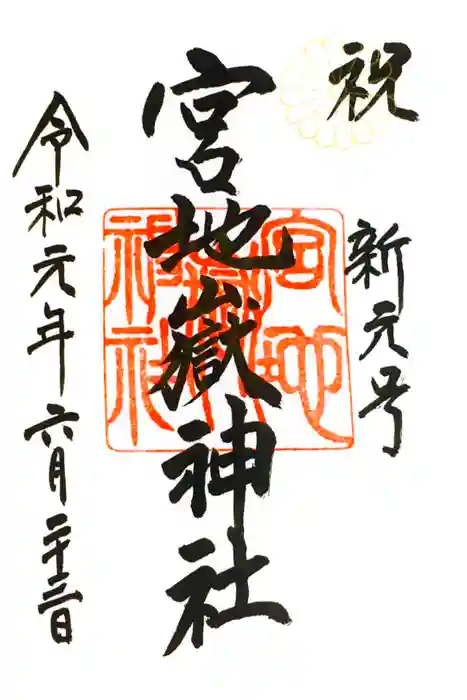 祝
新元号
宮地嶽神社
宮地嶽神社
令和元年六月二十三日